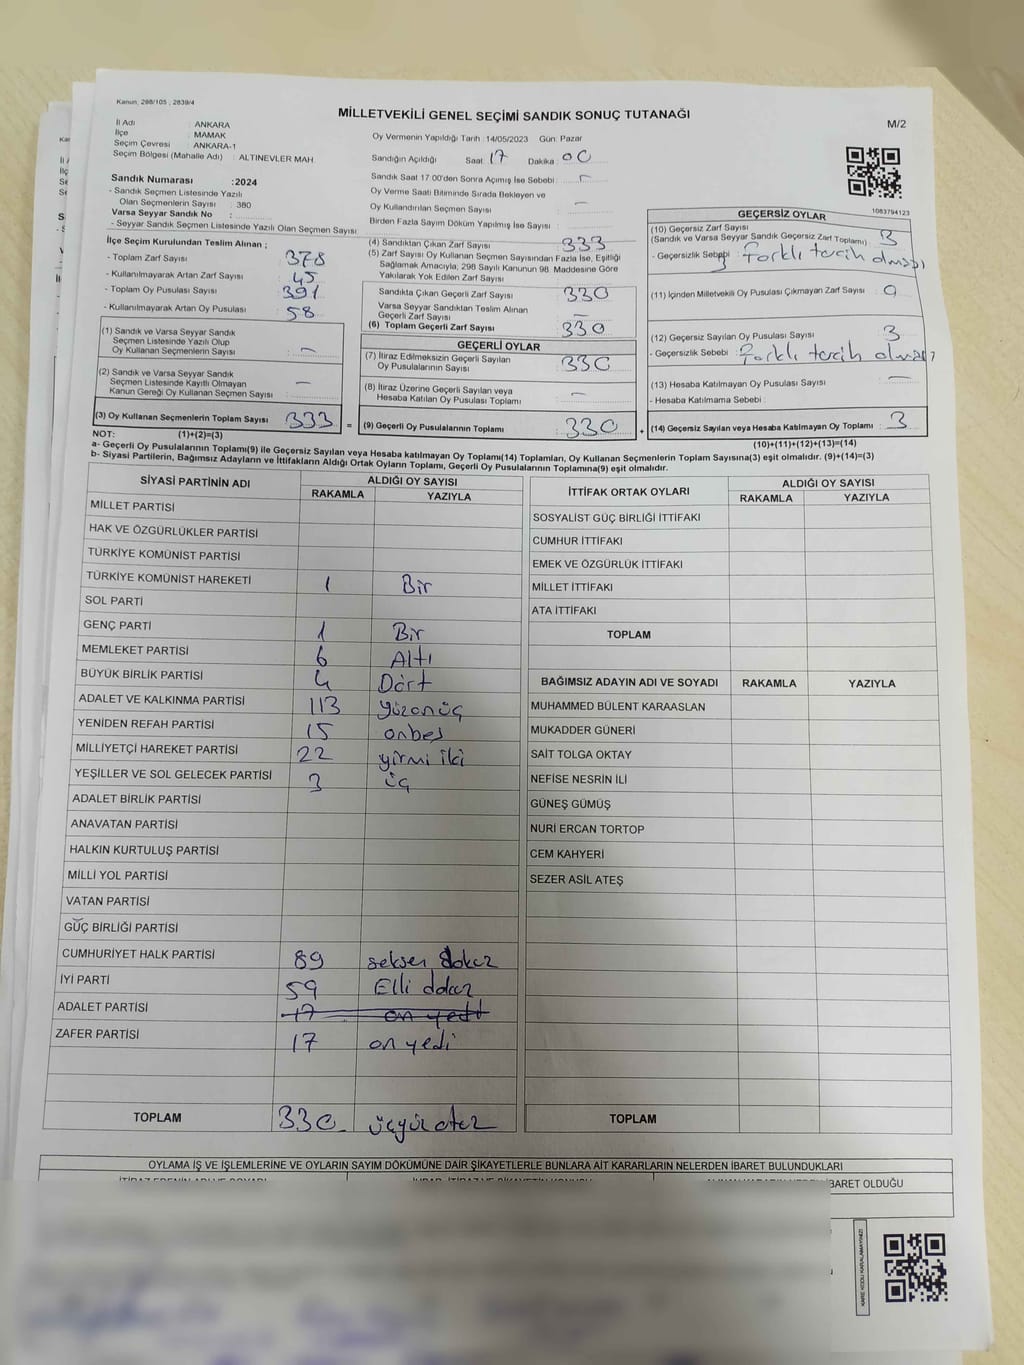 Kanun, 298/105 , 2839/4
MİLLETVEKİLİ GENEL SEÇİMİ SANDIK SONUÇ TUTANAĞI
M/2
İl Adı : ANKARA
İlçe : MAMAK
Seçim Çevresi : ANKARA-1
Seçim Bölgesi (Mahalle Adı) : ALTINEVLER MAH.
Oy Vermenin Yapıldığı Tarih :14/05/2023 Gün: Pazar
Sandığın Açıldığı Saat: 17 Dakika: 00
Sandık Saat 17:00'den Sonra Açımış İse Sebebi :
Oy Verme Saati Bitiminde Sırada Bekleyen ve
Oy Kullandırılan Seçmen Sayısı : —
Birden Fazla Sayım Döküm Yapılmış İse Sayısı :
Sandık Numarası :2024
- Sandık Seçmen Listesinde Yazılı
Olan Seçmenlerin Sayısı : 380
Varsa Seyyar Sandık No :
- Seyyar Sandık Seçmen Listesinde Yazılı Olan Seçmen Sayısı:
1083794123
İlçe Seçim Kurulundan Teslim Alınan ;
- Toplam Zarf Sayısı : 378
- Kullanılmayarak Artan Zarf Sayısı : 45
- Toplam Oy Pusulası Sayısı : 391
- Kullanılmayarak Artan Oy Pusulası : 58
(1) Sandık ve Varsa Seyyar Sandık
Seçmen Listesinde Yazılı Olup
Oy Kullanan Seçmenlerin Sayısı : —
(2) Sandık ve Varsa Seyyar Sandık
Seçmen Listesinde Kayıtlı Olmayan
Kanun Gereği Oy Kullanan Seçmen Sayısı : —
(3) Oy Kullanan Seçmenlerin Toplam Sayısı 333
(4) Sandıktan Çıkan Zarf Sayısı : 333
(5) Zarf Sayısı Oy Kullanan Seçmen Sayısından Fazla İse, Eşitliği
Sağlamak Amacıyla, 298 Sayılı Kanunun 98. Maddesine Göre
Yakılarak Yok Edilen Zarf Sayısı :
Sandıkta Çıkan Geçerli Zarf Sayısı : 330
Varsa Seyyar Sandıktan Teslim Alınan
Geçerli Zarf Sayısı : —
(6) Toplam Geçerli Zarf Sayısı : 330
GEÇERLİ OYLAR
(7) İtiraz Edilmeksizin Geçerli Sayılan
Oy Pusulalarının Sayısı : 330
(8) İtiraz Üzerine Geçerli Sayılan veya
Hesaba Katılan Oy Pusulası Toplamı : —
= (9) Geçerli Oy Pusulalarının Toplamı : 330
GEÇERSİZ OYLAR
(10) Geçersiz Zarf Sayısı
(Sandık ve Varsa Seyyar Sandık Geçersiz Zarf Toplamı) : 3
- Geçersizlik Sebebi : farklı tercih olması
(11) İçinden Milletvekili Oy Pusulası Çıkmayan Zarf Sayısı : 0
(12) Geçersiz Sayılan Oy Pusulası Sayısı : 3
- Geçersizlik Sebebi : farklı tercih olması
(13) Hesaba Katılmayan Oy Pusulası Sayısı : —
- Hesaba Katılmama Sebebi :
+ (14) Geçersiz Sayılan veya Hesaba Katılmayan Oy Toplamı : 3
NOT: (1)+(2)=(3)
(10)+(11)+(12)+(13)=(14)
a- Geçerli Oy Pusulalarının Toplamı(9) ile Geçersiz Sayılan veya Hesaba katılmayan Oy Toplamı(14) Toplamları, Oy Kullanan Seçmenlerin Toplam Sayısına(3) eşit olmalıdır. (9)+(14)=(3)
b- Siyasi Partilerin, Bağımsız Adayların ve İttifakların Aldığı Ortak Oyların Toplamı, Geçerli Oy Pusulalarının Toplamına(9) eşit olmalıdır.
SİYASİ PARTİNİN ADI ALDIĞI OY SAYISI
RAKAMLA YAZIYLA
MİLLET PARTİSİ
HAK VE ÖZGÜRLÜKLER PARTİSİ
TÜRKİYE KOMÜNİST PARTİSİ
TÜRKİYE KOMÜNİST HAREKETİ 1 Bir
SOL PARTİ
GENÇ PARTİ 1 Bir
MEMLEKET PARTİSİ 6 Altı
BÜYÜK BİRLİK PARTİSİ 4 Dört
ADALET VE KALKINMA PARTİSİ 113 yüzonüç
YENİDEN REFAH PARTİSİ 15 onbeş
MİLLİYETÇİ HAREKET PARTİSİ 22 yirmi iki
YEŞİLLER VE SOL GELECEK PARTİSİ 3 üç
ADALET BİRLİK PARTİSİ
ANAVATAN PARTİSİ
HALKIN KURTULUŞ PARTİSİ
MİLLİ YOL PARTİSİ
VATAN PARTİSİ
GÜÇ BİRLİĞİ PARTİSİ
CUMHURİYET HALK PARTİSİ 89 seksen dokuz
İYİ PARTİ 59 Elli dokuz
ADALET PARTİSİ 17 on yedi
ZAFER PARTİSİ 17 on yedi
TOPLAM 330 üçyüz otuz
İTTİFAK ORTAK OYLARI ALDIĞI OY SAYISI
RAKAMLA YAZIYLA
SOSYALİST GÜÇ BİRLİĞİ İTTİFAKI
CUMHUR İTTİFAKI
EMEK VE ÖZGÜRLÜK İTTİFAKI
MİLLET İTTİFAKI
ATA İTTİFAKI
TOPLAM
BAĞIMSIZ ADAYIN ADI VE SOYADI RAKAMLA YAZIYLA
MUHAMMED BÜLENT KARAASLAN
MUKADDER GÜNERİ
SAİT TOLGA OKTAY
NEFİSE NESRİN İLİ
GÜNEŞ GÜMÜŞ
NURİ ERCAN TORTOP
CEM KAHYERİ
SEZER ASİL ATEŞ
TOPLAM
OYLAMA İŞ VE İŞLEMLERİNE VE OYLARIN SAYIM DÖKÜMÜNE DAİR ŞİKAYETLERLE BUNLARA AİT KARARLARIN NELERDEN İBARET BULUNDUKLARI
İBARET OLDUĞU
KARE KODU KARALAMAYINIZ!